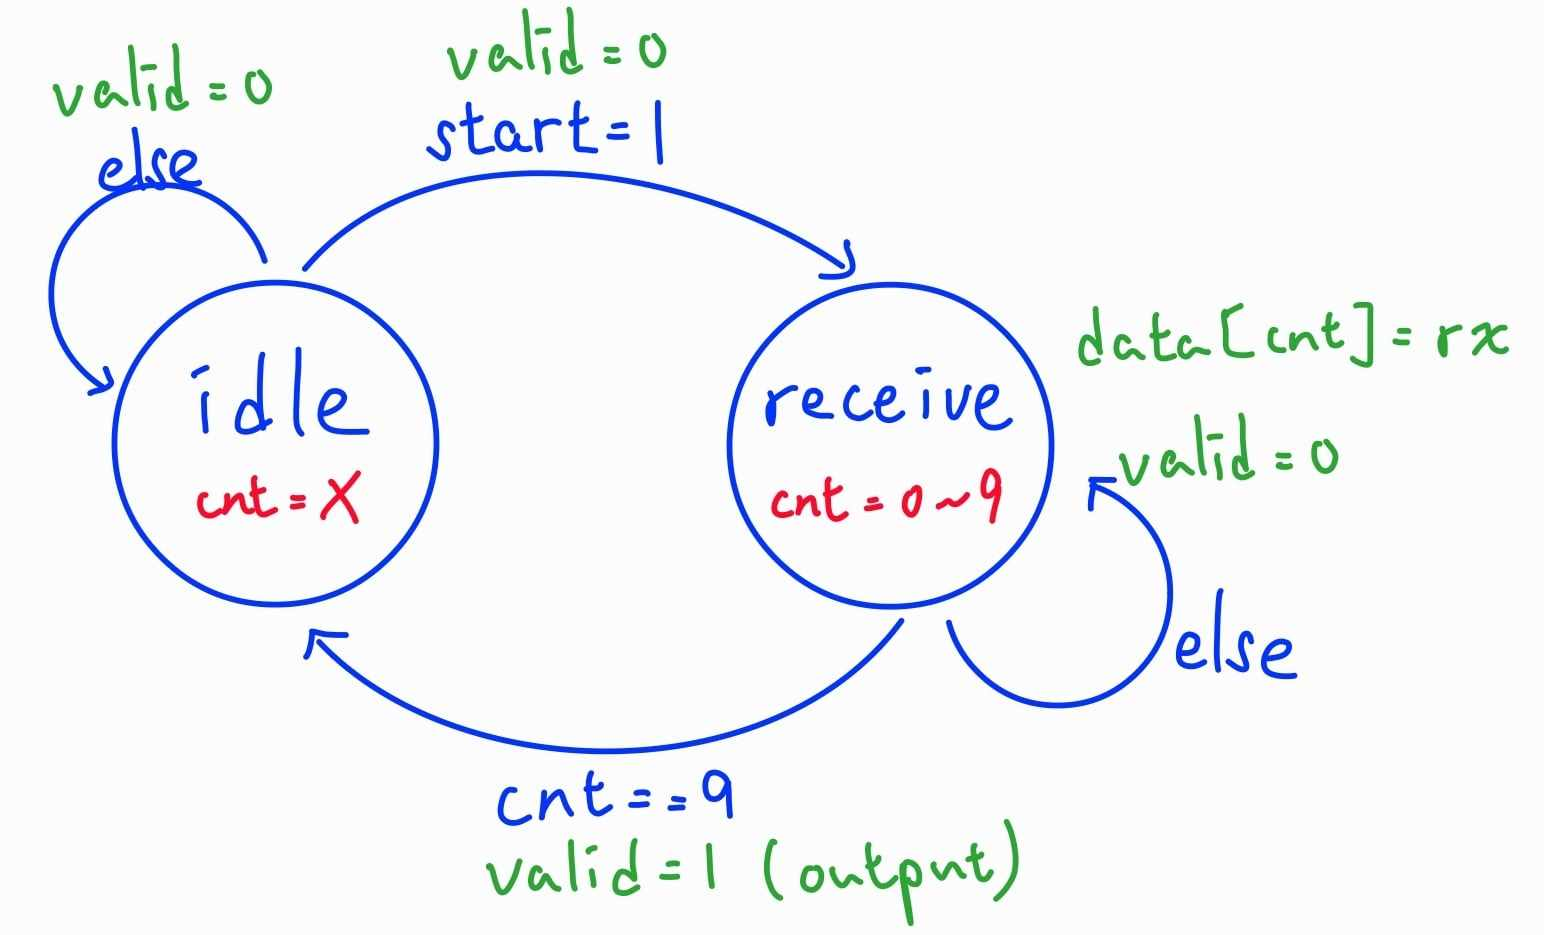 valid = 0
else
valid = 0
start = 1
idle
cnt = X
receive
cnt = 0 ~ 9
data[cnt] = rx
valid = 0
else
cnt = = 9
valid = 1 (output)